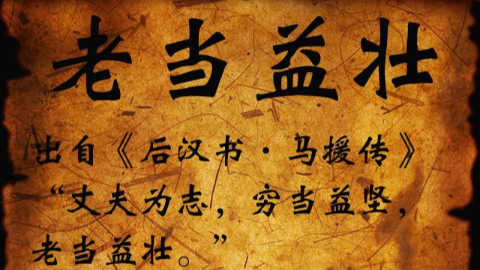 老当益壮
出自《后汉书·马援传》
“丈夫为志，穷当益坚，
老当益壮。”